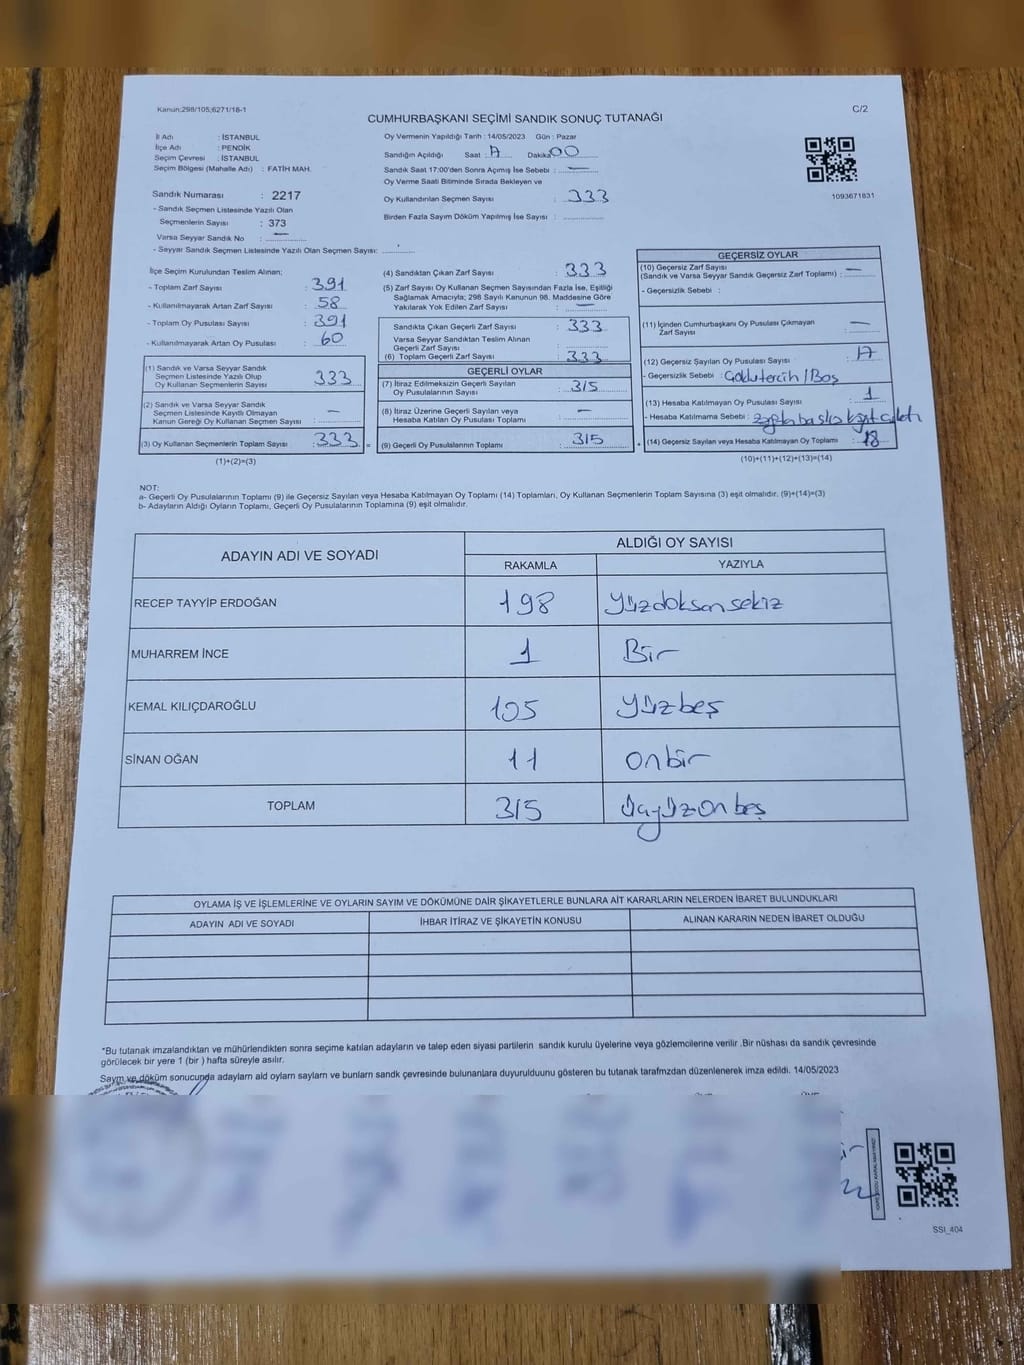 Kanun:298/105;6271/18-1
C/2
CUMHURBAŞKANI SEÇİMİ SANDIK SONUÇ TUTANAĞI
İl Adı : İSTANBUL
İlçe Adı : PENDİK
Seçim Çevresi : İSTANBUL
Seçim Bölgesi (Mahalle Adı) : FATİH MAH.
Sandık Numarası : 2217
- Sandık Seçmen Listesinde Yazılı Olan
Seçmenlerin Sayısı : 373
Varsa Seyyar Sandık No : —
- Seyyar Sandık Seçmen Listesinde Yazılı Olan Seçmen Sayısı:
Oy Vermenin Yapıldığı Tarih : 14/05/2023 Gün : Pazar
Sandığın Açıldığı Saat : 17 Dakika 00
Sandık Saat 17:00'den Sonra Açımış İse Sebebi : —
Oy Verme Saati Bitiminde Sırada Bekleyen ve
Oy Kullandırılan Seçmen Sayısı : 333
Birden Fazla Sayım Döküm Yapılmış İse Sayısı :
1093671831
İlçe Seçim Kurulundan Teslim Alınan;
- Toplam Zarf Sayısı : 391
- Kullanılmayarak Artan Zarf Sayısı : 58
- Toplam Oy Pusulası Sayısı : 391
- Kullanılmayarak Artan Oy Pusulası : 60
(1) Sandık ve Varsa Seyyar Sandık
Seçmen Listesinde Yazılı Olup
Oy Kullanan Seçmenlerin Sayısı : 333
(2) Sandık ve Varsa Seyyar Sandık
Seçmen Listesinde Kayıtlı Olmayan
Kanun Gereği Oy Kullanan Seçmen Sayısı : —
(3) Oy Kullanan Seçmenlerin Toplam Sayısı : 333 =
(1)+(2)=(3)
(4) Sandıktan Çıkan Zarf Sayısı : 333
(5) Zarf Sayısı Oy Kullanan Seçmen Sayısından Fazla İse, Eşitliği
Sağlamak Amacıyla; 298 Sayılı Kanunun 98. Maddesine Göre
Yakılarak Yok Edilen Zarf Sayısı : —
Sandıkta Çıkan Geçerli Zarf Sayısı : 333
Varsa Seyyar Sandıktan Teslim Alınan
Geçerli Zarf Sayısı :
(6) Toplam Geçerli Zarf Sayısı : 333
GEÇERLİ OYLAR
(7) İtiraz Edilmeksizin Geçerli Sayılan
Oy Pusulasının Sayısı : 315
(8) İtiraz Üzerine Geçerli Sayılan veya
Hesaba Katılan Oy Pusulası Toplamı : —
(9) Geçerli Oy Pusulalarının Toplamı : 315 +
GEÇERSİZ OYLAR
(10) Geçersiz Zarf Sayısı
(Sandık ve Varsa Seyyar Sandık Geçersiz Zarf Toplamı) : —
- Geçersizlik Sebebi :
(11) İçinden Cumhurbaşkanı Oy Pusulası Çıkmayan
Zarf Sayısı : —
(12) Geçersiz Sayılan Oy Pusulası Sayısı : 17
- Geçersizlik Sebebi : Çoklu tercih / Boş
(13) Hesaba Katılmayan Oy Pusulası Sayısı : 1
- Hesaba Katılmama Sebebi :
(14) Geçersiz Sayılan veya Hesaba Katılmayan Oy Toplamı : 18
(10)+(11)+(12)+(13)=(14)
NOT:
a- Geçerli Oy Pusulalarının Toplamı (9) ile Geçersiz Sayılan veya Hesaba Katılmayan Oy Toplamı (14) Toplamları, Oy Kullanan Seçmenlerin Toplam Sayısına (3) eşit olmalıdır. (9)+(14)=(3)
b- Adayların Aldığı Oyların Toplamı, Geçerli Oy Pusulalarının Toplamına (9) eşit olmalıdır.
ADAYIN ADI VE SOYADI ALDIĞI OY SAYISI
RAKAMLA YAZIYLA
RECEP TAYYİP ERDOĞAN 198 Yüzdoksansekiz
MUHARREM İNCE 1 Bir
KEMAL KILIÇDAROĞLU 105 Yüzbeş
SİNAN OĞAN 11 Onbir
TOPLAM 315 Üçyüzonbeş
OYLAMA İŞ VE İŞLEMLERİNE VE OYLARIN SAYIM VE DÖKÜMÜNE DAİR ŞİKAYETLERLE BUNLARA AİT KARARLARIN NELERDEN İBARET BULUNDUKLARI
ADAYIN ADI VE SOYADI İHBAR İTİRAZ VE ŞİKAYETİN KONUSU ALINAN KARARIN NEDEN İBARET OLDUĞU
"Bu tutanak imzalandıktan ve mühürlendikten sonra seçime katılan adayların ve talep eden siyasi partilerin sandık kurulu üyelerine veya gözlemcilerine verilir .Bir nüshası da sandık çevresinde
görülecek bir yere 1 (bir ) hafta süreyle asılır.
Sayım ve döküm sonucunda adayların ald oyların sayları ve bunların sandk çevresinde bulunanlara duyurulduunu gösteren bu tutanak tarafmzdan düzenlenerek imza edildi. 14/05/2023
SSI_404